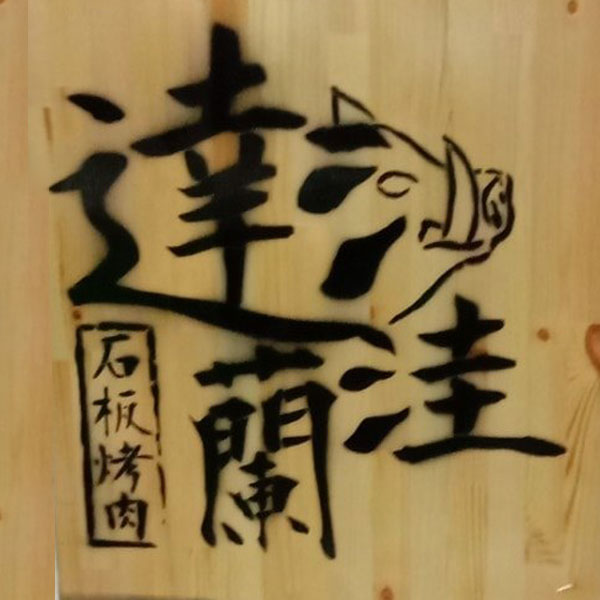 達蘭
洼
石板烤肉